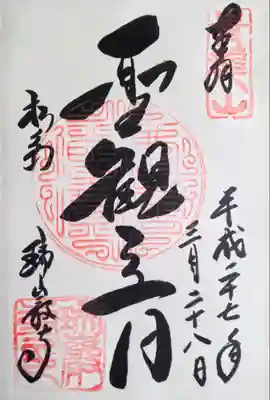 奉拝
平成二十七年
三月二十八日
聖観音
松島
瑞巌寺